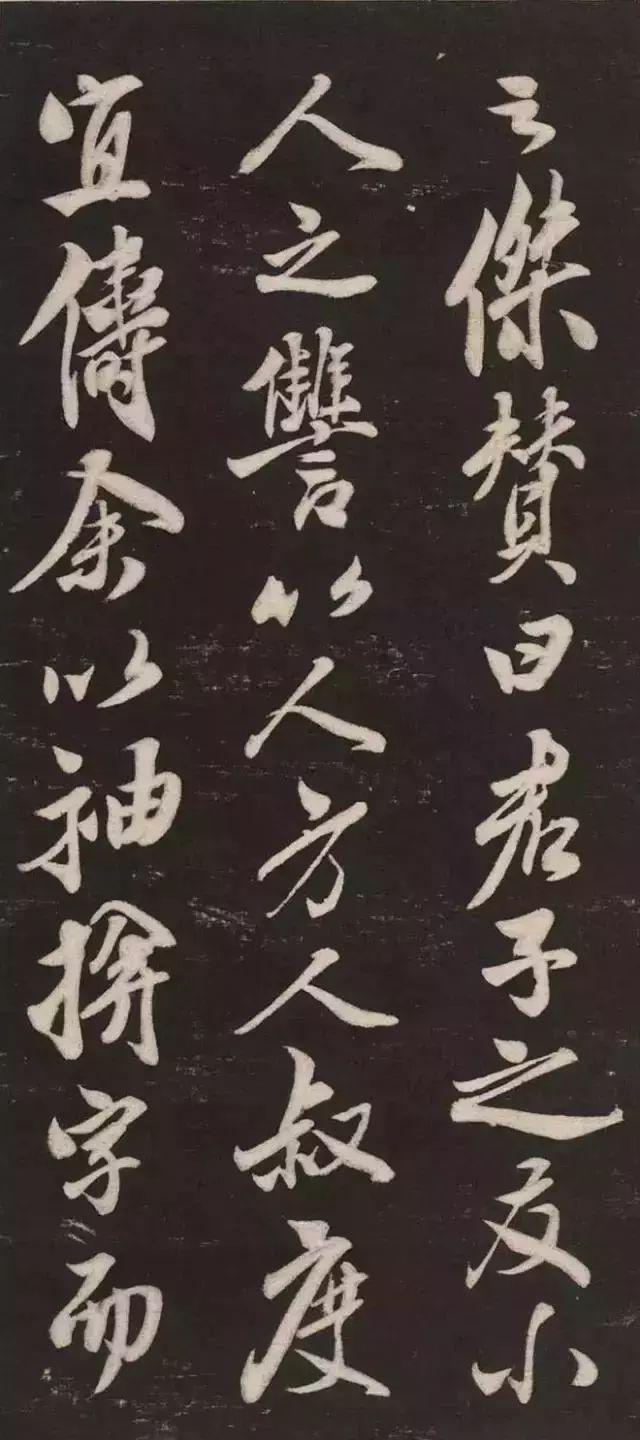 之傑贊曰君子之友小
人之讐以人方人叔度
宜儔余以袖揜字而